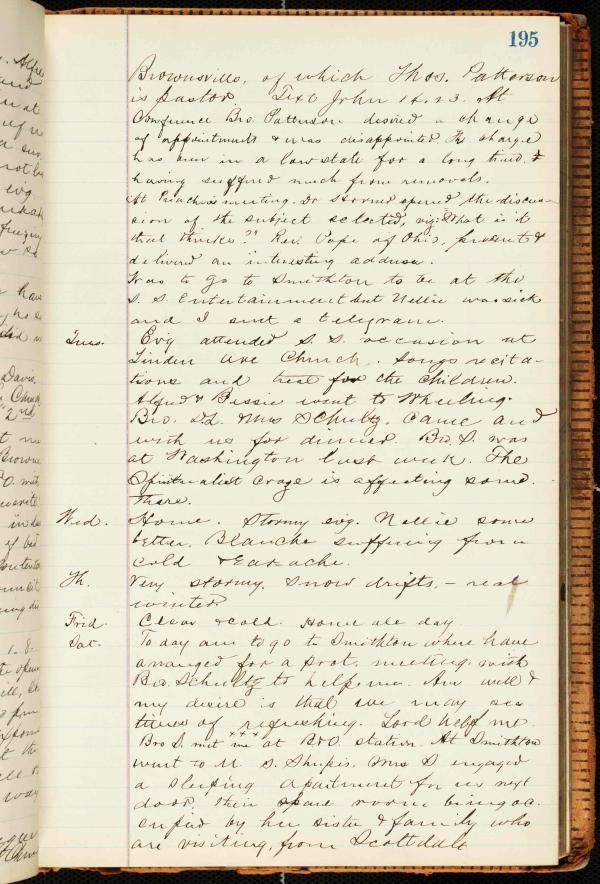 195
Brownsville, of which Thos. Patterson
is pastor. Text John 14.23. At
Conference Bro. Patterson desired a change
of appointments & was disappointed. The charge
has been in a low state for a long time. &
having suffered much from removals.
At Preachers meeting. Dr Stormed opened the discus-
sion of the subject selected, viz: "What is it
that thinks?" Rev. Pope of Ohio, present &
delivered an interesting address.
Was to go to Smithton to be at the
S. S. Entertainment but Nellie was sick
and I sent a telegram.
Tues. Evg attended S. S. occasion at
Linden Ave Church. Songs recita-
tions and treat for the children.
Alfred & Bessie went to Wheeling.
Bro. & Mrs Schultz. Came and
with us for dinner. Bro. S. was
at Washington last week. The
Spiritualist craze is affecting some
there.
Wed. Home. Stormy evg. Nellie some
better. Blanche suffering from
cold & Earache.
Th. Very stormy. Snow drifts, - real
winter
Frid Clear & cold. Home all day
Sat. To day am to go to Smithton where have
arranged for a prot. meeting with
Bro. Schultz to help me. Am well &
my desire is that we may see
times of refreshing. Lord help me.
x x x
Bro S. met me at B&O. station. At Smithton
went to M. S. Mrs S engaged
a sleeping apartment for us next
door, their spare room being oc-
cupied by her sister & family who
are visiting, from Scottdale